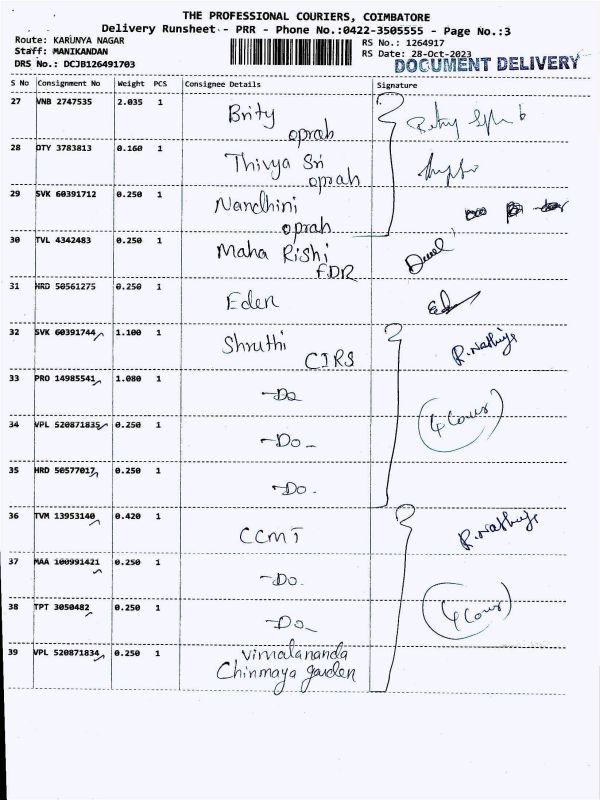 THE PROFESSIONAL COURIERS, COIMBATORE
Delivery Runsheet - PRR - Phone No.:0422-3505555 - Page No.:3
Route: KARUNYA NAGAR
RS No.: 1264917
Staff: MANIKANDAN
RS Date: 28-Oct-2023
DRS No.: DCJB126491703
DOCUMENT DELIVERY
S No Consignment No Weight PCS Consignee Details Signature
27 VNB 2747535 2.035 1 Brity
oprah
28 DTY 3783813 0.160 1 Thivya Sri
oprah
29 SVK 60391712 0.250 1 Nandhini
oprah
30 TVL 4342483 0.250 1 Maha Rishi
FDR
31 HRD 50561275 0.250 1 Eden
32 SVK 60391744 1.100 1 Shruthi
CIRS
33 PRO 14985541 1.080 1 -Do
34 VPL 520871835 0.250 1 -Do-
35 HRD 50577017 0.250 1 -Do.
36 TVM 13953140 0.420 1 CCMT
37 MAA 100991421 0.250 1 -Do.
38 TPT 3050482 0.250 1 -Do-
39 VPL 520871834 0.250 1 Vimalananda
Chinmaya garden